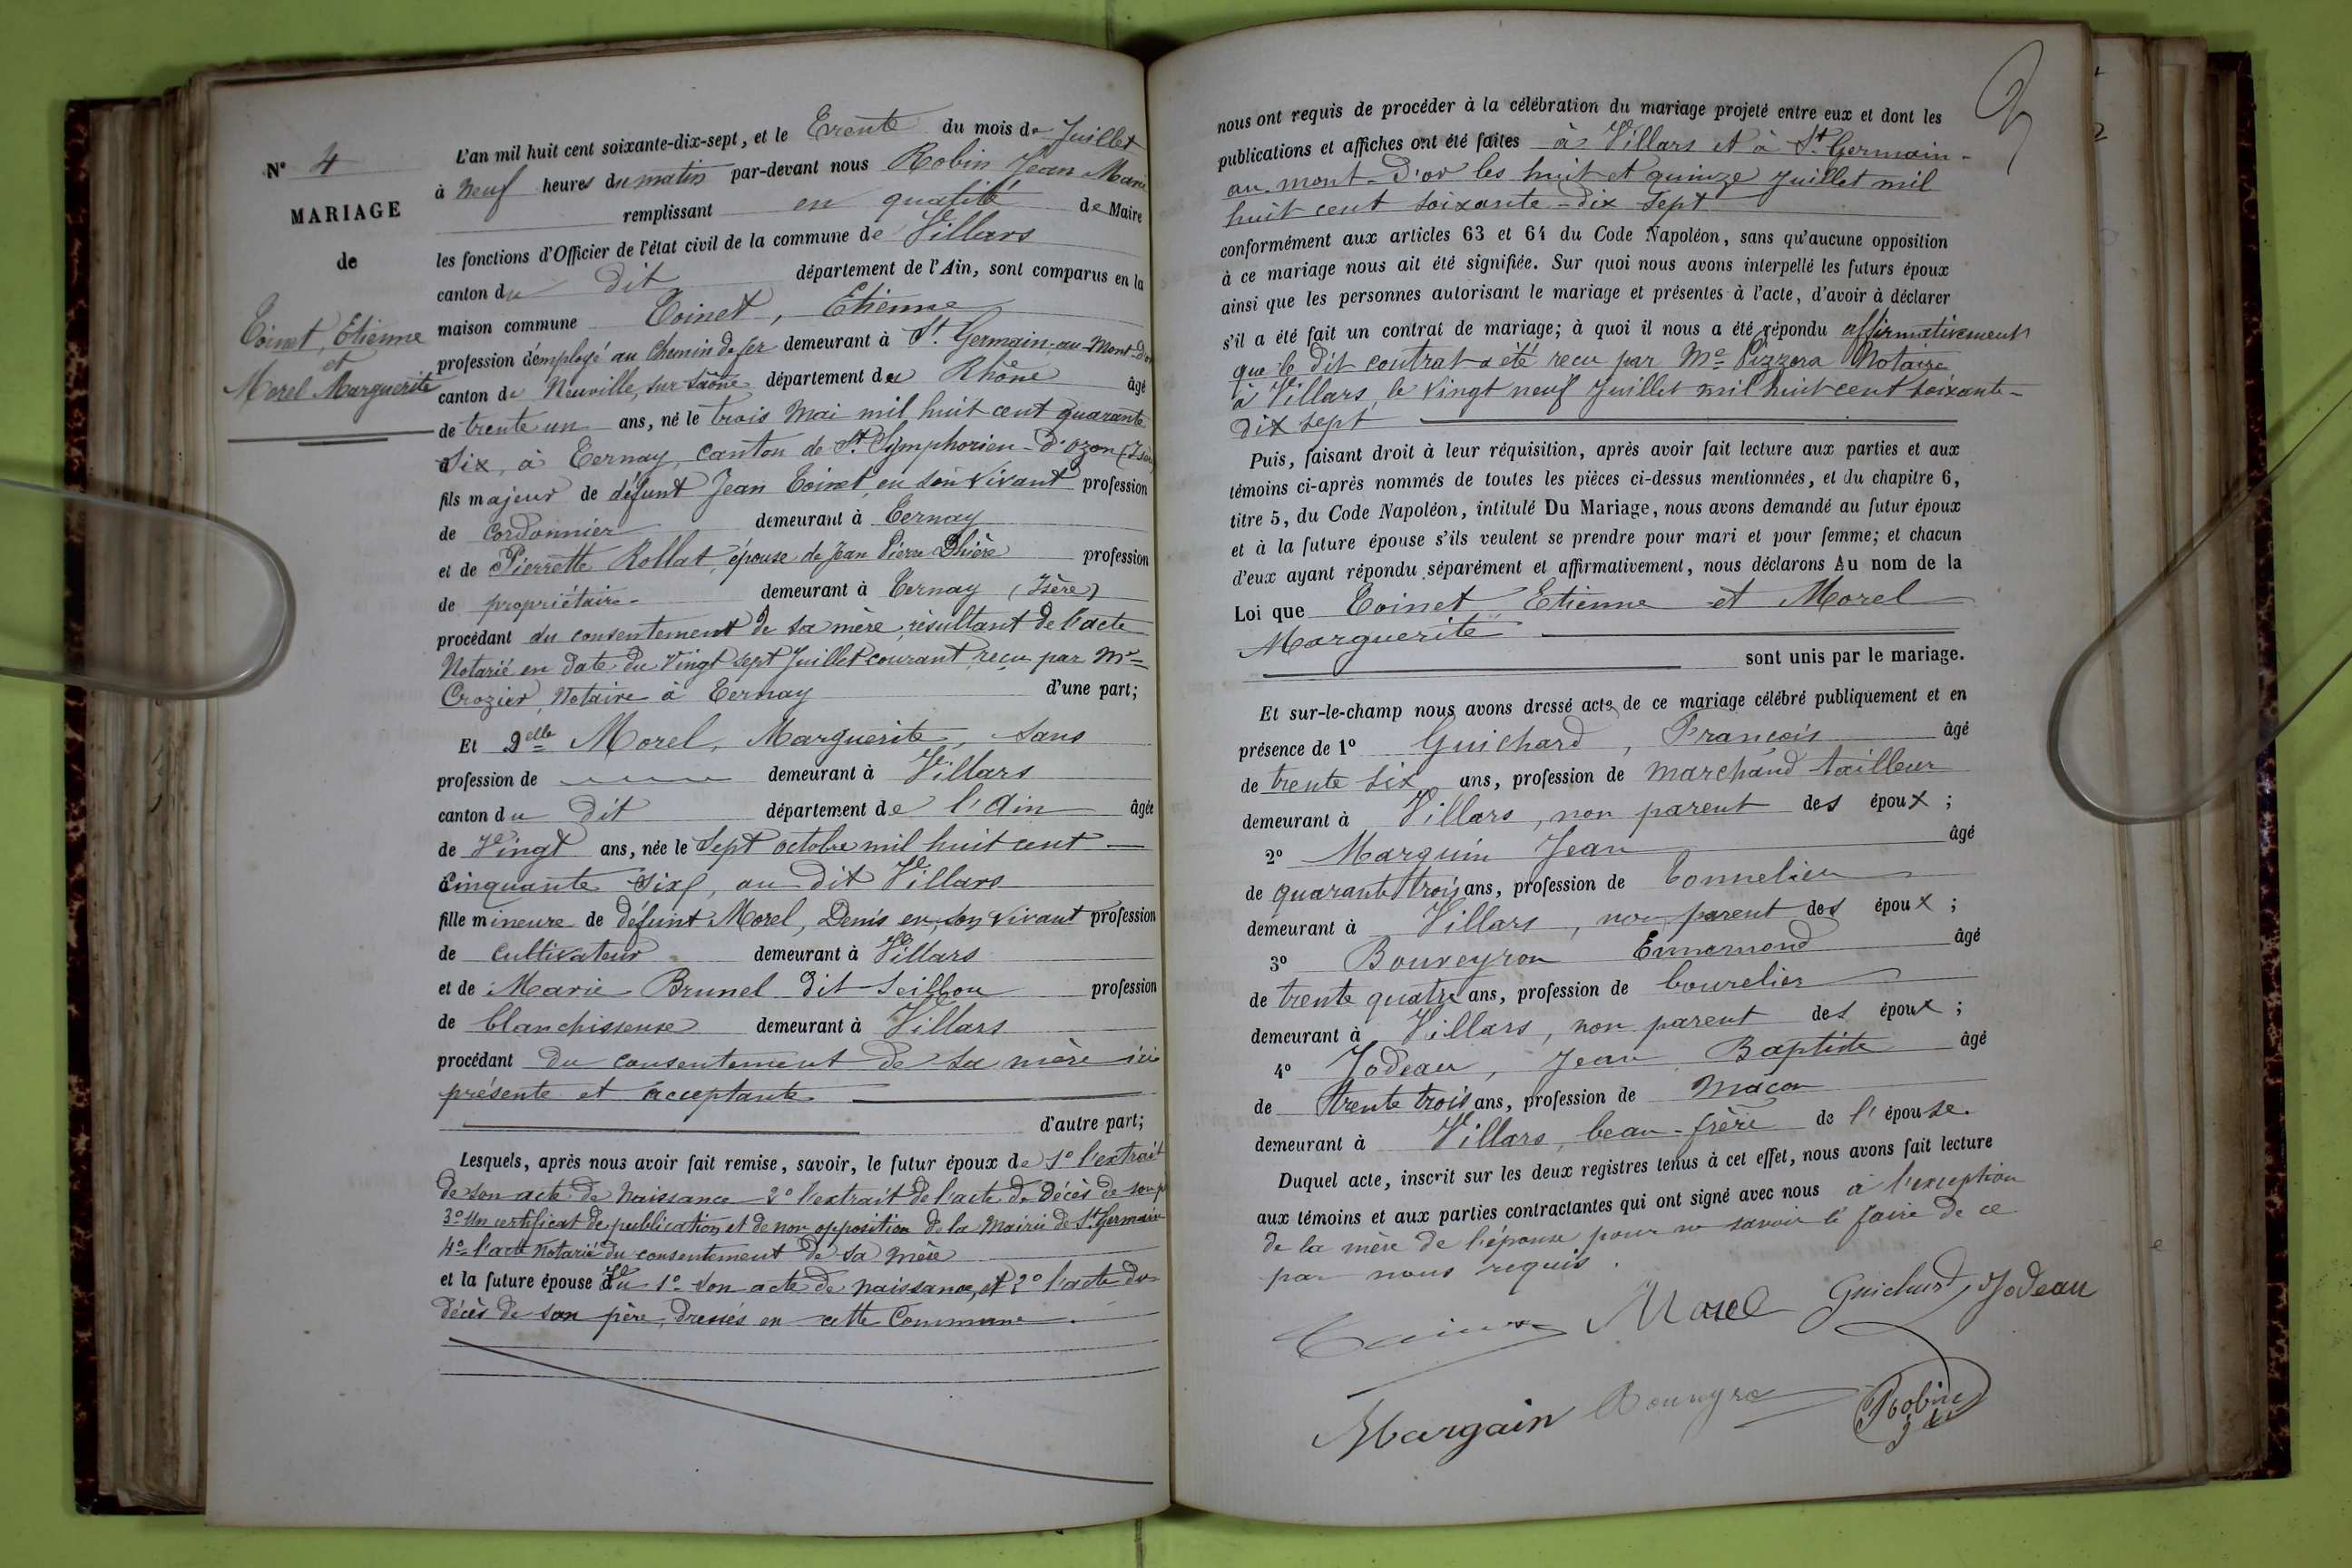 N° 4
MARIAGE
de
Toinet, Etienne
et
Morel Marguerite
L'an mil huit cent soixante-dix-sept, et le Trente du mois de Juillet
à neuf heures du matin par-devant nous Robin Jean Marie
remplissant en qualité de Maire
les fonctions d'Officier de l'état civil de la commune de Villars
canton du dit département de l'Ain, sont comparus en la
maison commune Toinet, Etienne
profession d'employé au chemin de fer demeurant à St. Germain-au-Mont-d'or
canton de Neuville, sur Saône département du Rhône âgé
de trente un ans, né le trois Mai mil huit cent quarante
six, à Ternay, canton de St. Symphorien-d'ozon (Isère)
fils majeur de défunt Jean Toinet, en son vivant profession
de cordonnier demeurant à Ternay
et de Pierrette Rollat, épouse de Jean Pierre profession
de propriétaire demeurant à Ternay (Isère)
procédant du consentement de sa mère, résultant de l'acte
Notarié en date du vingt sept Juillet courant reçu par Me
Crozier, Notaire à Ternay d'une part;
Et Delle Morel, Marguerite, sans
profession de demeurant à Villars
canton du dit département de l'Ain âgée
de Vingt ans, née le sept octobre mil huit cent
cinquante six, au dit Villars
fille mineure de défunt Morel, Denis en son vivant profession
de cultivateur demeurant à Villars
et de Marie Brunel dit Seillon profession
de blanchisseuse demeurant à Villars
procédant du consentement de sa mère ici
présente et acceptante
d'autre part;
Lesquels, après nous avoir fait remise, savoir, le futur époux de 1° l'extrait
de son acte de naissance 2° l'extrait de l'acte de décès de son p
3° Un certificat de publication et de non opposition de la Mairie de St. Germain
4° l'acte Notarié du consentement de sa mère
et la future épouse de 1° son acte de naissance, et 2° l'acte de
décès de son père, dressés en cette Commune.
nous ont requis de procéder à la célébration du mariage projeté entre eux et dont les
publications et affiches ont été faites à Villars et à St. Germain-
au-mont-d'or les huit et quinze Juillet mil
huit cent soixante-dix sept
conformément aux articles 63 et 64 du Code Napoléon, sans qu'aucune opposition
à ce mariage nous ait été signifiée. Sur quoi nous avons interpellé les futurs époux
ainsi que les personnes autorisant le mariage et présentes à l'acte, d'avoir à déclarer
s'il a été fait un contrat de mariage; à quoi il nous a été répondu affirmativement
que le dit contrat a été reçu par Me Pizzera Notaire
à Villars, le vingt neuf Juillet mil huit cent soixante-
dix sept
Puis, faisant droit à leur réquisition, après avoir fait lecture aux parties et aux
témoins ci-après nommés de toutes les pièces ci-dessus mentionnées, et du chapitre 6,
titre 5, du Code Napoléon, intitulé Du Mariage, nous avons demandé au futur époux
et à la future épouse s'ils veulent se prendre pour mari et pour femme; et chacun
d'eux ayant répondu séparément et affirmativement, nous déclarons Au nom de la
Loi que Toinet Etienne et Morel
Marguerite
sont unis par le mariage.
Et sur-le-champ nous avons dressé acte de ce mariage célébré publiquement et en
présence de 1° Guichard, François âgé
de trente six ans, profession de marchand tailleur
demeurant à Villars, non parent des époux;
2° Marguin Jean âgé
de quarante trois ans, profession de Tonnelier
demeurant à Villars, non parent des époux;
3° Bouveyron Ennemond âgé
de trente quatre ans, profession de bourelier
demeurant à Villars, non parent des époux;
4° Jodeau, Jean Baptiste âgé
de trente trois ans, profession de Maçon
demeurant à Villars, beau-frère de l'épouse.
Duquel acte, inscrit sur les deux registres tenus à cet effet, nous avons fait lecture
aux témoins et aux parties contractantes qui ont signé avec nous à l'exception
de la mère de l'épouse pour ne savoir le faire de ce
par nous requis.
Morel Guichard Jodeau
Margain Robin